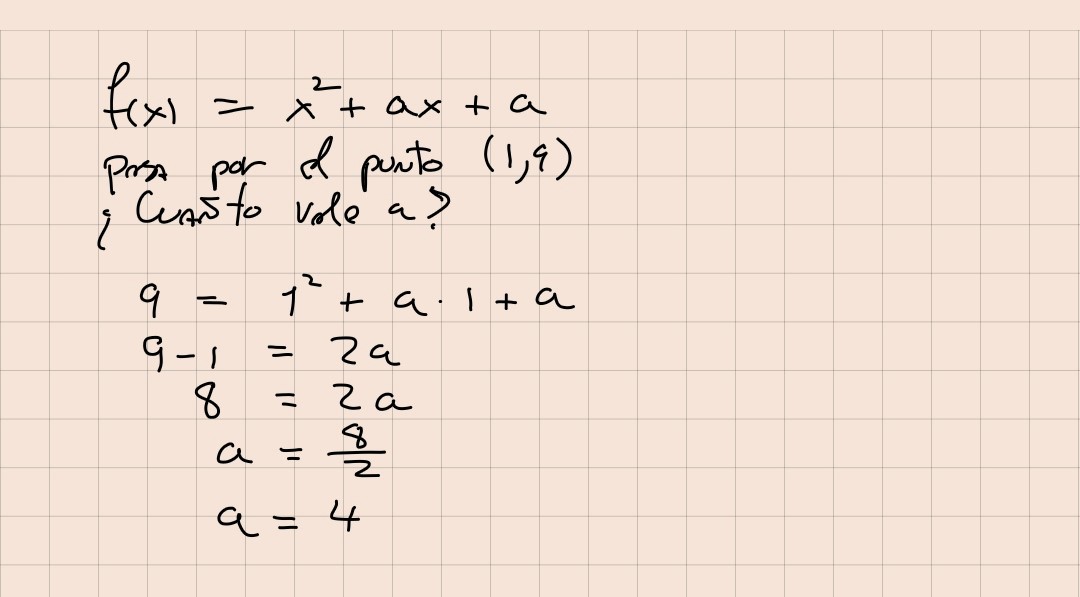 f(x) = x² + ax + a
pasa por el punto (1,9)
¿Cuánto vale a?
9 = 1² + a · 1 + a
9 - 1 = 2a
8 = 2a
a = 8/2
a = 4